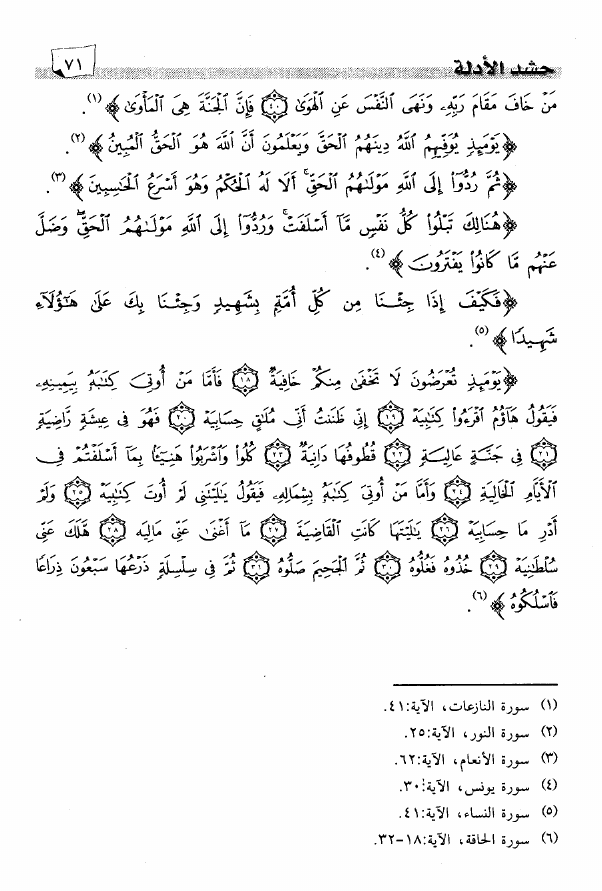 حشد الأدلة ٧١
مَنْ خَافَ مَقَامَ رَبِّهِۦ وَنَهَى ٱلنَّفْسَ عَنِ ٱلْهَوَىٰ ۝٤٠ فَإِنَّ ٱلْجَنَّةَ هِىَ ٱلْمَأْوَىٰ ﴾ (١).
﴿ يَوْمَئِذٍ يُوَفِّيهِمُ ٱللَّهُ دِينَهُمُ ٱلْحَقَّ وَيَعْلَمُونَ أَنَّ ٱللَّهَ هُوَ ٱلْحَقُّ ٱلْمُبِينُ ﴾ (٢).
﴿ ثُمَّ رُدُّوٓا۟ إِلَى ٱللَّهِ مَوْلَىٰهُمُ ٱلْحَقِّ ۚ أَلَا لَهُ ٱلْحُكْمُ وَهُوَ أَسْرَعُ ٱلْحَٰسِبِينَ ﴾ (٣).
﴿ هُنَالِكَ تَبْلُوا۟ كُلُّ نَفْسٍ مَّآ أَسْلَفَتْ ۚ وَرُدُّوٓا۟ إِلَى ٱللَّهِ مَوْلَىٰهُمُ ٱلْحَقِّ ۖ وَضَلَّ
عَنْهُم مَّا كَانُوا۟ يَفْتَرُونَ ﴾ (٤).
﴿ فَكَيْفَ إِذَا جِئْنَا مِن كُلِّ أُمَّةٍۭ بِشَهِيدٍ وَجِئْنَا بِكَ عَلَىٰ هَٰٓؤُلَآءِ
شَهِيدًا ﴾ (٥).
﴿ يَوْمَئِذٍ تُعْرَضُونَ لَا تَخْفَىٰ مِنكُمْ خَافِيَةٌ ۝١٨ فَأَمَّا مَنْ أُوتِىَ كِتَٰبَهُۥ بِيَمِينِهِۦ
فَيَقُولُ هَآؤُمُ ٱقْرَءُوا۟ كِتَٰبِيَهْ ۝١٩ إِنِّى ظَنَنتُ أَنِّى مُلَٰقٍ حِسَابِيَهْ ۝٢٠ فَهُوَ فِى عِيشَةٍ رَّاضِيَةٍ
۝٢١ فِى جَنَّةٍ عَالِيَةٍ ۝٢٢ قُطُوفُهَا دَانِيَةٌ ۝٢٣ كُلُوا۟ وَٱشْرَبُوا۟ هَنِيٓـًٔۢا بِمَآ أَسْلَفْتُمْ فِى
ٱلْأَيَّامِ ٱلْخَالِيَةِ ۝٢٤ وَأَمَّا مَنْ أُوتِىَ كِتَٰبَهُۥ بِشِمَالِهِۦ فَيَقُولُ يَٰلَيْتَنِى لَمْ أُوتَ كِتَٰبِيَهْ ۝٢٥ وَلَمْ
أَدْرِ مَا حِسَابِيَهْ ۝٢٦ يَٰلَيْتَهَا كَانَتِ ٱلْقَاضِيَةَ ۝٢٧ مَآ أَغْنَىٰ عَنِّى مَالِيَهْ ۝٢٨ هَلَكَ عَنِّى
سُلْطَٰنِيَهْ ۝٢٩ خُذُوهُ فَغُلُّوهُ ۝٣٠ ثُمَّ ٱلْجَحِيمَ صَلُّوهُ ۝٣١ ثُمَّ فِى سِلْسِلَةٍ ذَرْعُهَا سَبْعُونَ ذِرَاعًا
فَٱسْلُكُوهُ ﴾ (٦).
(١) سورة النازعات، الآية: ٤١.
(٢) سورة النور، الآية: ٢٥.
(٣) سورة الأنعام، الآية: ٦٢.
(٤) سورة يونس، الآية: ٣٠.
(٥) سورة النساء، الآية: ٤١.
(٦) سورة الحاقة، الآية: ١٨-٣٢.